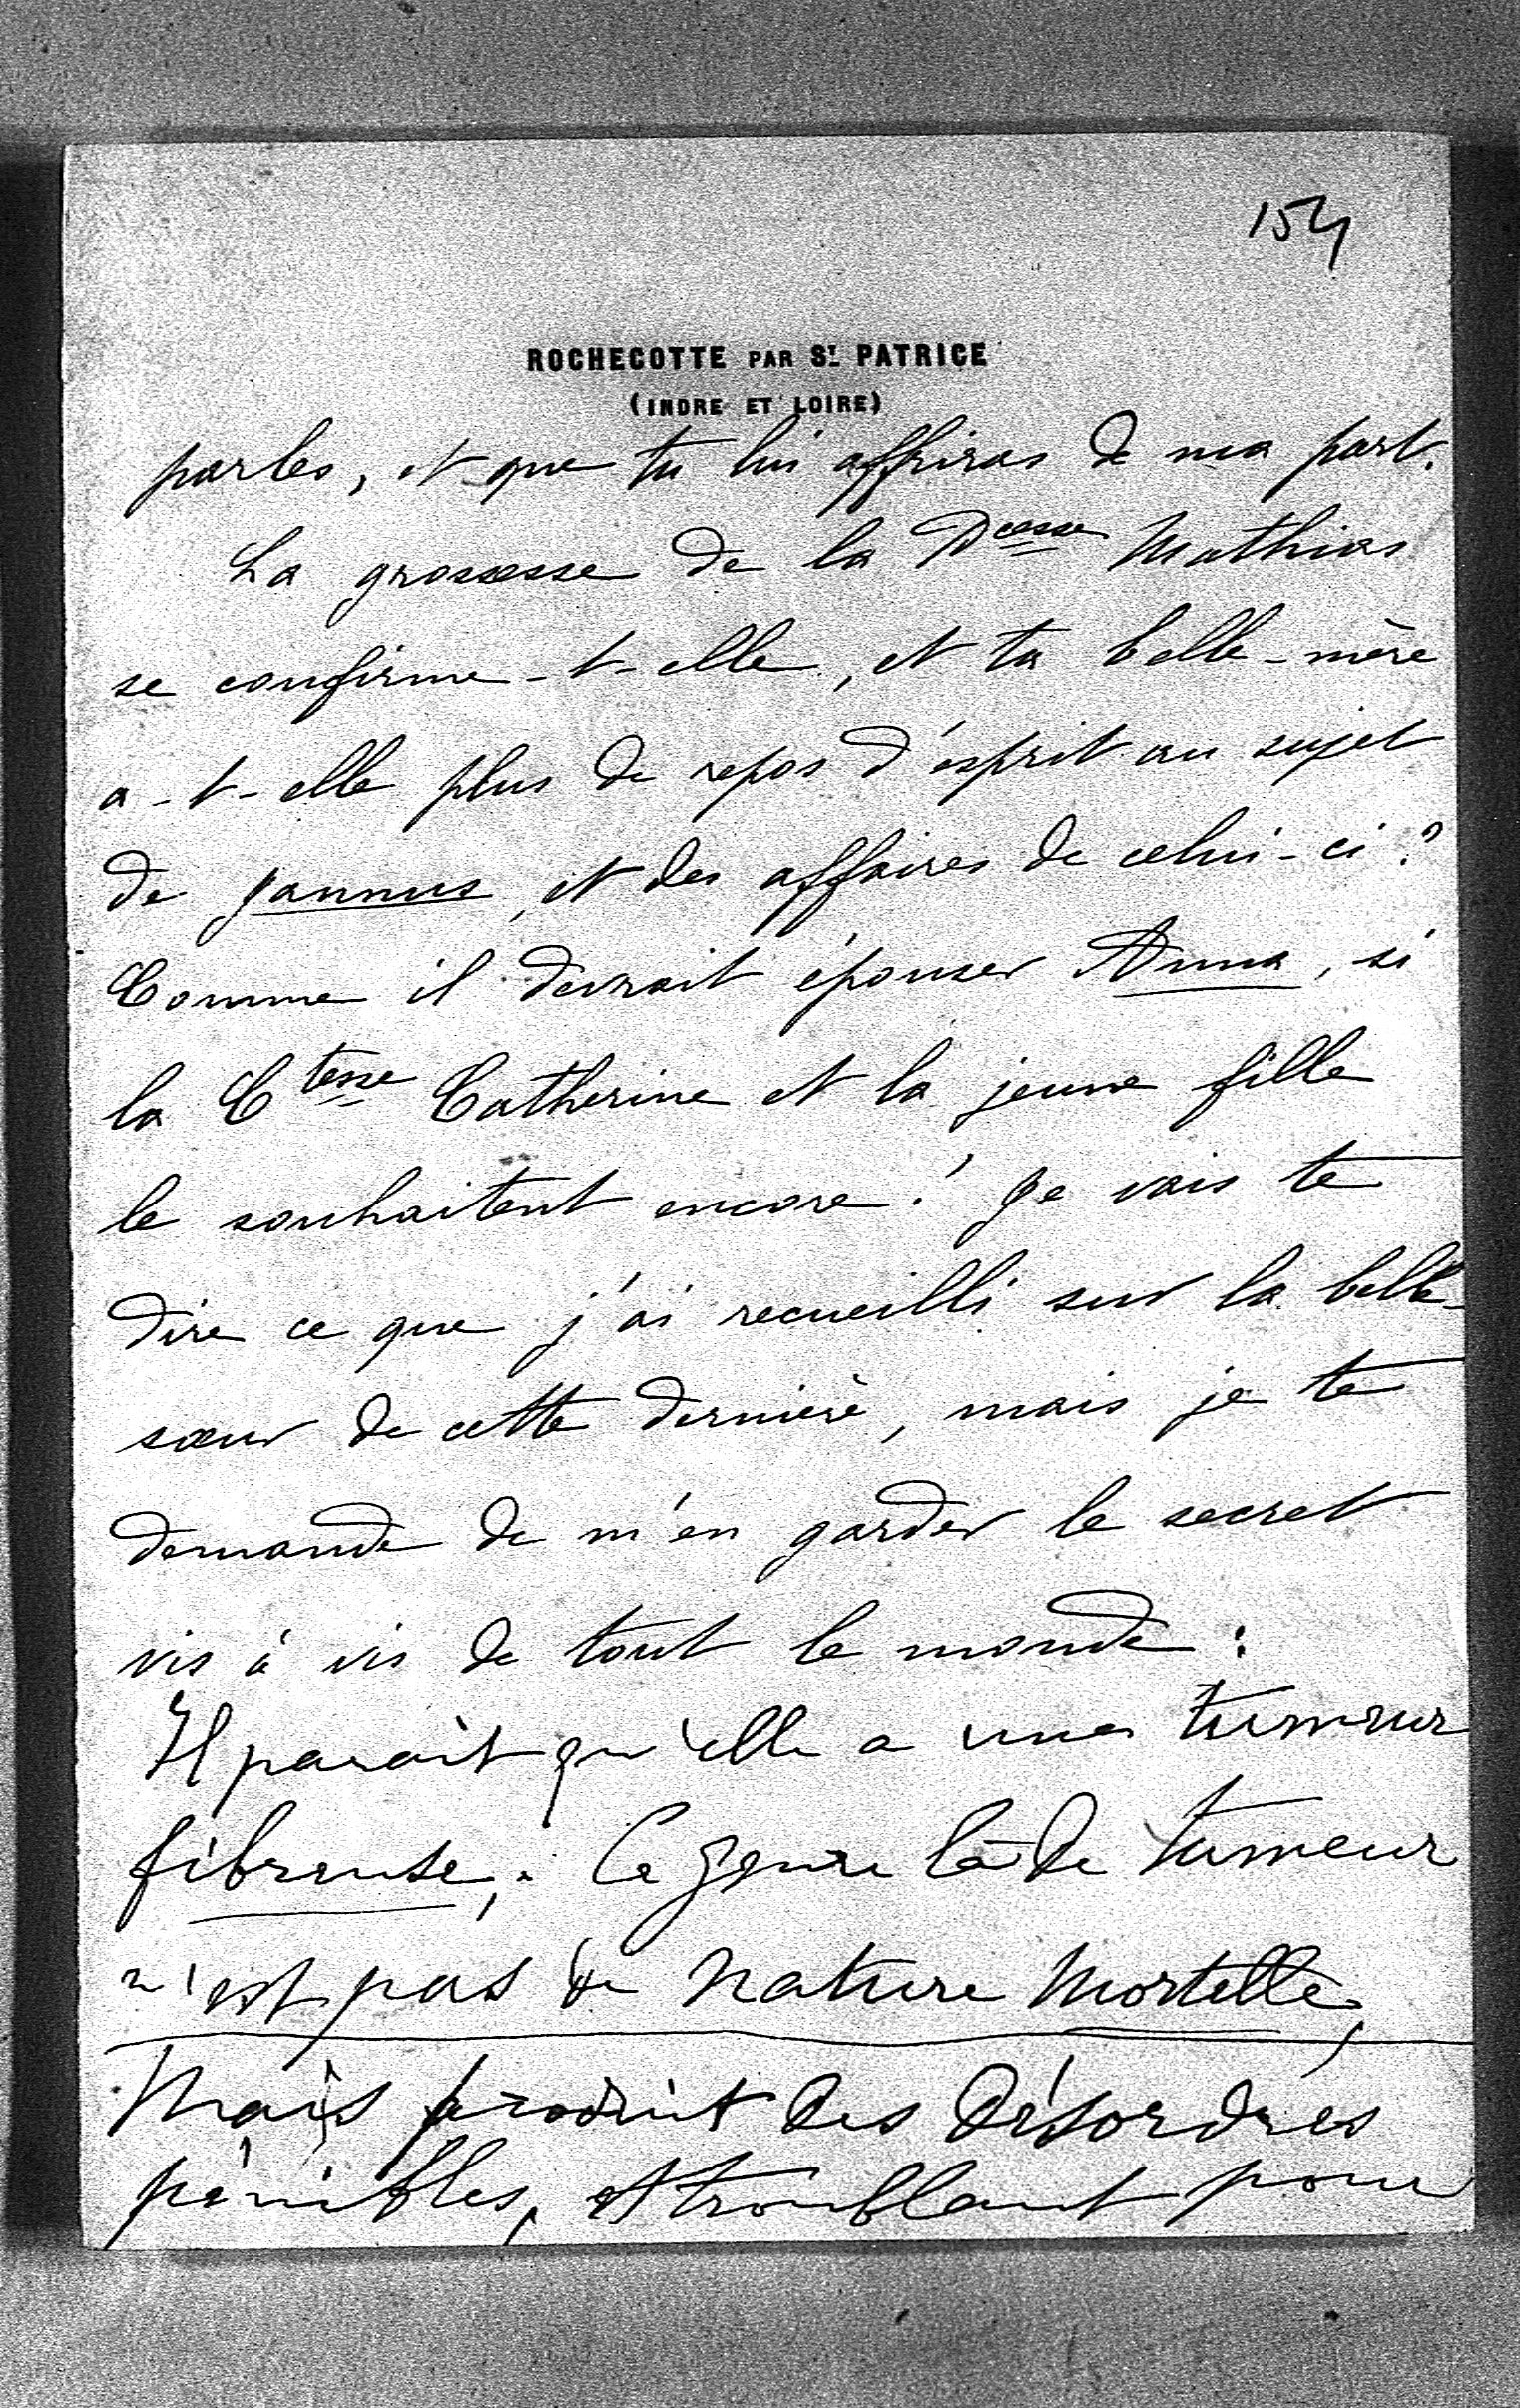 154
ROCHECOTTE PAR ST PATRICE
(INDRE ET LOIRE)
parles, et que tu lui offriras de ma part.
La grossesse de la Pcesse Mathias
se confirme-t-elle, et ta belle-mère
a-t-elle plus de repos d'esprit au sujet
de Jannus, et des affaires de celui-ci?
Comme il devrait épouser Anna, si
la Ctesse Catherine et la jeune fille
le souhaitent encore! Je vais te
dire ce que j'ai recueilli sur la belle-
sœur de cette dernière, mais je te
demande de m'en garder le secret
vis à vis de tout le monde:
Il parait qu'elle a une tumeur
fibreuse; Ce genre là de tumeur
n'est pas de nature Mortelle,
Mais produit des désordres
pénibles, et troublant pour